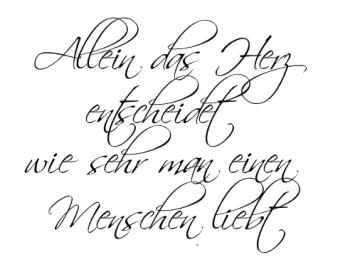 Allein das Herz
entscheidet
wie sehr man einen
Menschen liebt